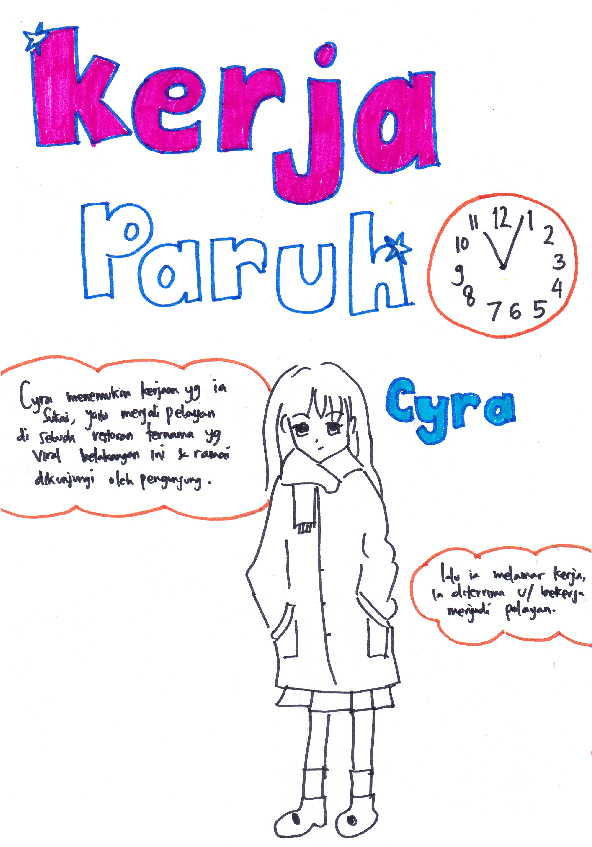 kerja
Paruh
11 12 1
10 2
9 3
8 4
7 6 5
Cyra
Cyra menemukan kerjaan yg ia
sukai, yaitu menjadi pelayan
di sebuah restoran ternama yg
viral belakangan ini & ramai
dikunjungi oleh pengunjung.
lalu ia melamar kerja,
ia diterima u/ bekerja
menjadi pelayan.